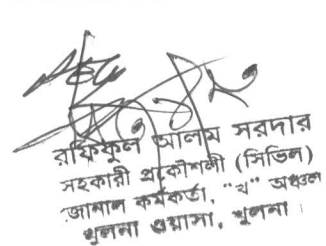 রফিকুল আলম সরদার
সহকারী প্রকৌশলী (সিভিল)
জোনাল কর্মকর্তা, "খ" অঞ্চল
খুলনা ওয়াসা, খুলনা।